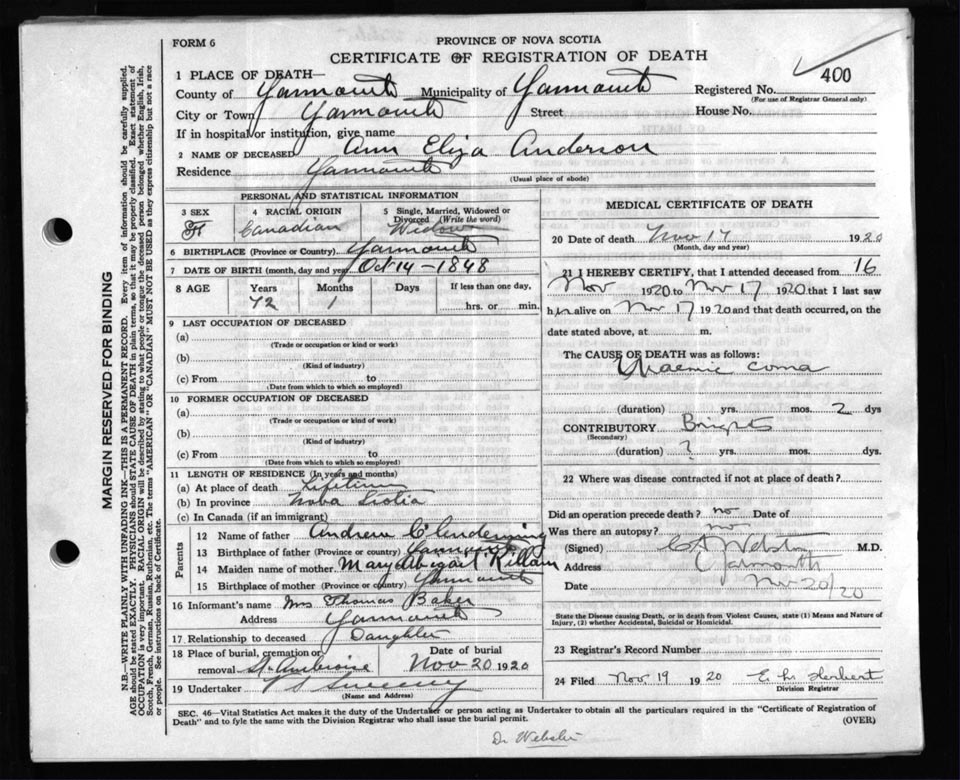 FORM 6
PROVINCE OF NOVA SCOTIA
CERTIFICATE OF REGISTRATION OF DEATH
400
1 PLACE OF DEATH—
County of Yarmouth Municipality of Yarmouth Registered No.
(For use of Registrar General only)
City or Town Yarmouth Street House No.
If in hospital or institution, give name
2 NAME OF DECEASED Ann Eliza Anderson
Residence Yarmouth
(Usual place of abode)
PERSONAL AND STATISTICAL INFORMATION
3 SEX
F
4 RACIAL ORIGIN
Canadian
5 Single, Married, Widowed or Divorced (Write the word)
Widow
6 BIRTHPLACE (Province or Country) Yarmouth
7 DATE OF BIRTH (month, day and year) Oct 14 - 1848
8 AGE Years Months Days If less than one day,
72 1 hrs. or min.
9 LAST OCCUPATION OF DECEASED
(a)
(Trade or occupation or kind or work)
(b)
(Kind of industry)
(c) From to
(Date from which to which so employed)
10 FORMER OCCUPATION OF DECEASED
(a)
(Trade or occupation or kind of work)
(b)
(Kind of industry)
(c) From to
(Date from which to which so employed)
11 LENGTH OF RESIDENCE (In years and months)
(a) At place of death Lifetime
(b) In province Nova Scotia
(c) In Canada (if an immigrant)
Parents
12 Name of father Andrew C'lendenning
13 Birthplace of father (Province or country) Yarmouth
14 Maiden name of mother Mary Abigail Killam
15 Birthplace of mother (Province or country) Yarmouth
16 Informant's name Mrs Thomas Baker
Address Yarmouth
17 Relationship to deceased Daughter
18 Place of burial, cremation or removal St. Ambroise
Date of burial
Nov 20 1920
19 Undertaker Sweeny
(Name and Address)
MEDICAL CERTIFICATE OF DEATH
20 Date of death Nov 17 1920
(Month, day and year)
21 I HEREBY CERTIFY, that I attended deceased from 16
Nov 1920 to Nov 17 1920 that I last saw
h alive on Nov 17 1920 and that death occurred, on the
date stated above, at m.
The CAUSE OF DEATH was as follows:
Uraemic coma
(duration) yrs. mos. 2 dys
CONTRIBUTORY Brights
(Secondary)
(duration) ? yrs. mos. dys.
22 Where was disease contracted if not at place of death?
Did an operation precede death? no Date of
Was there an autopsy? no
(Signed) Webster M.D.
Address Yarmouth
Date Nov 20/20
State the Disease causing Death, or in death from Violent Causes, state (1) Means and Nature of
Injury, (2) whether Accidental, Suicidal or Homicidal.
23 Registrar's Record Number
24 Filed Nov. 19 1920 Herbert
Division Registrar
SEC. 46—Vital Statistics Act makes it the duty of the Undertaker or person acting as Undertaker to obtain all the particulars required in the "Certificate of Registration of
Death" and to fyle the same with the Division Registrar who shall issue the burial permit.
(OVER)
Dr Webster
MARGIN RESERVED FOR BINDING
N.B.—WRITE PLAINLY WITH UNFADING INK—THIS IS A PERMANENT RECORD. Every item of information should be carefully supplied.
AGE should be stated EXACTLY. PHYSICIANS should STATE CAUSE OF DEATH in plain terms, so that it may be properly classified. Exact statement of
OCCUPATION is very important. RACIAL ORIGIN will be described by stating to what people or tongue the deceased person belonged whether English, Irish,
Scotch, French, German, Russian, Ruthenian, etc. The terms "AMERICAN" OR "CANADIAN" MUST NOT BE USED as they express citizenship but not a race
or people. See instructions on back of Certificate.